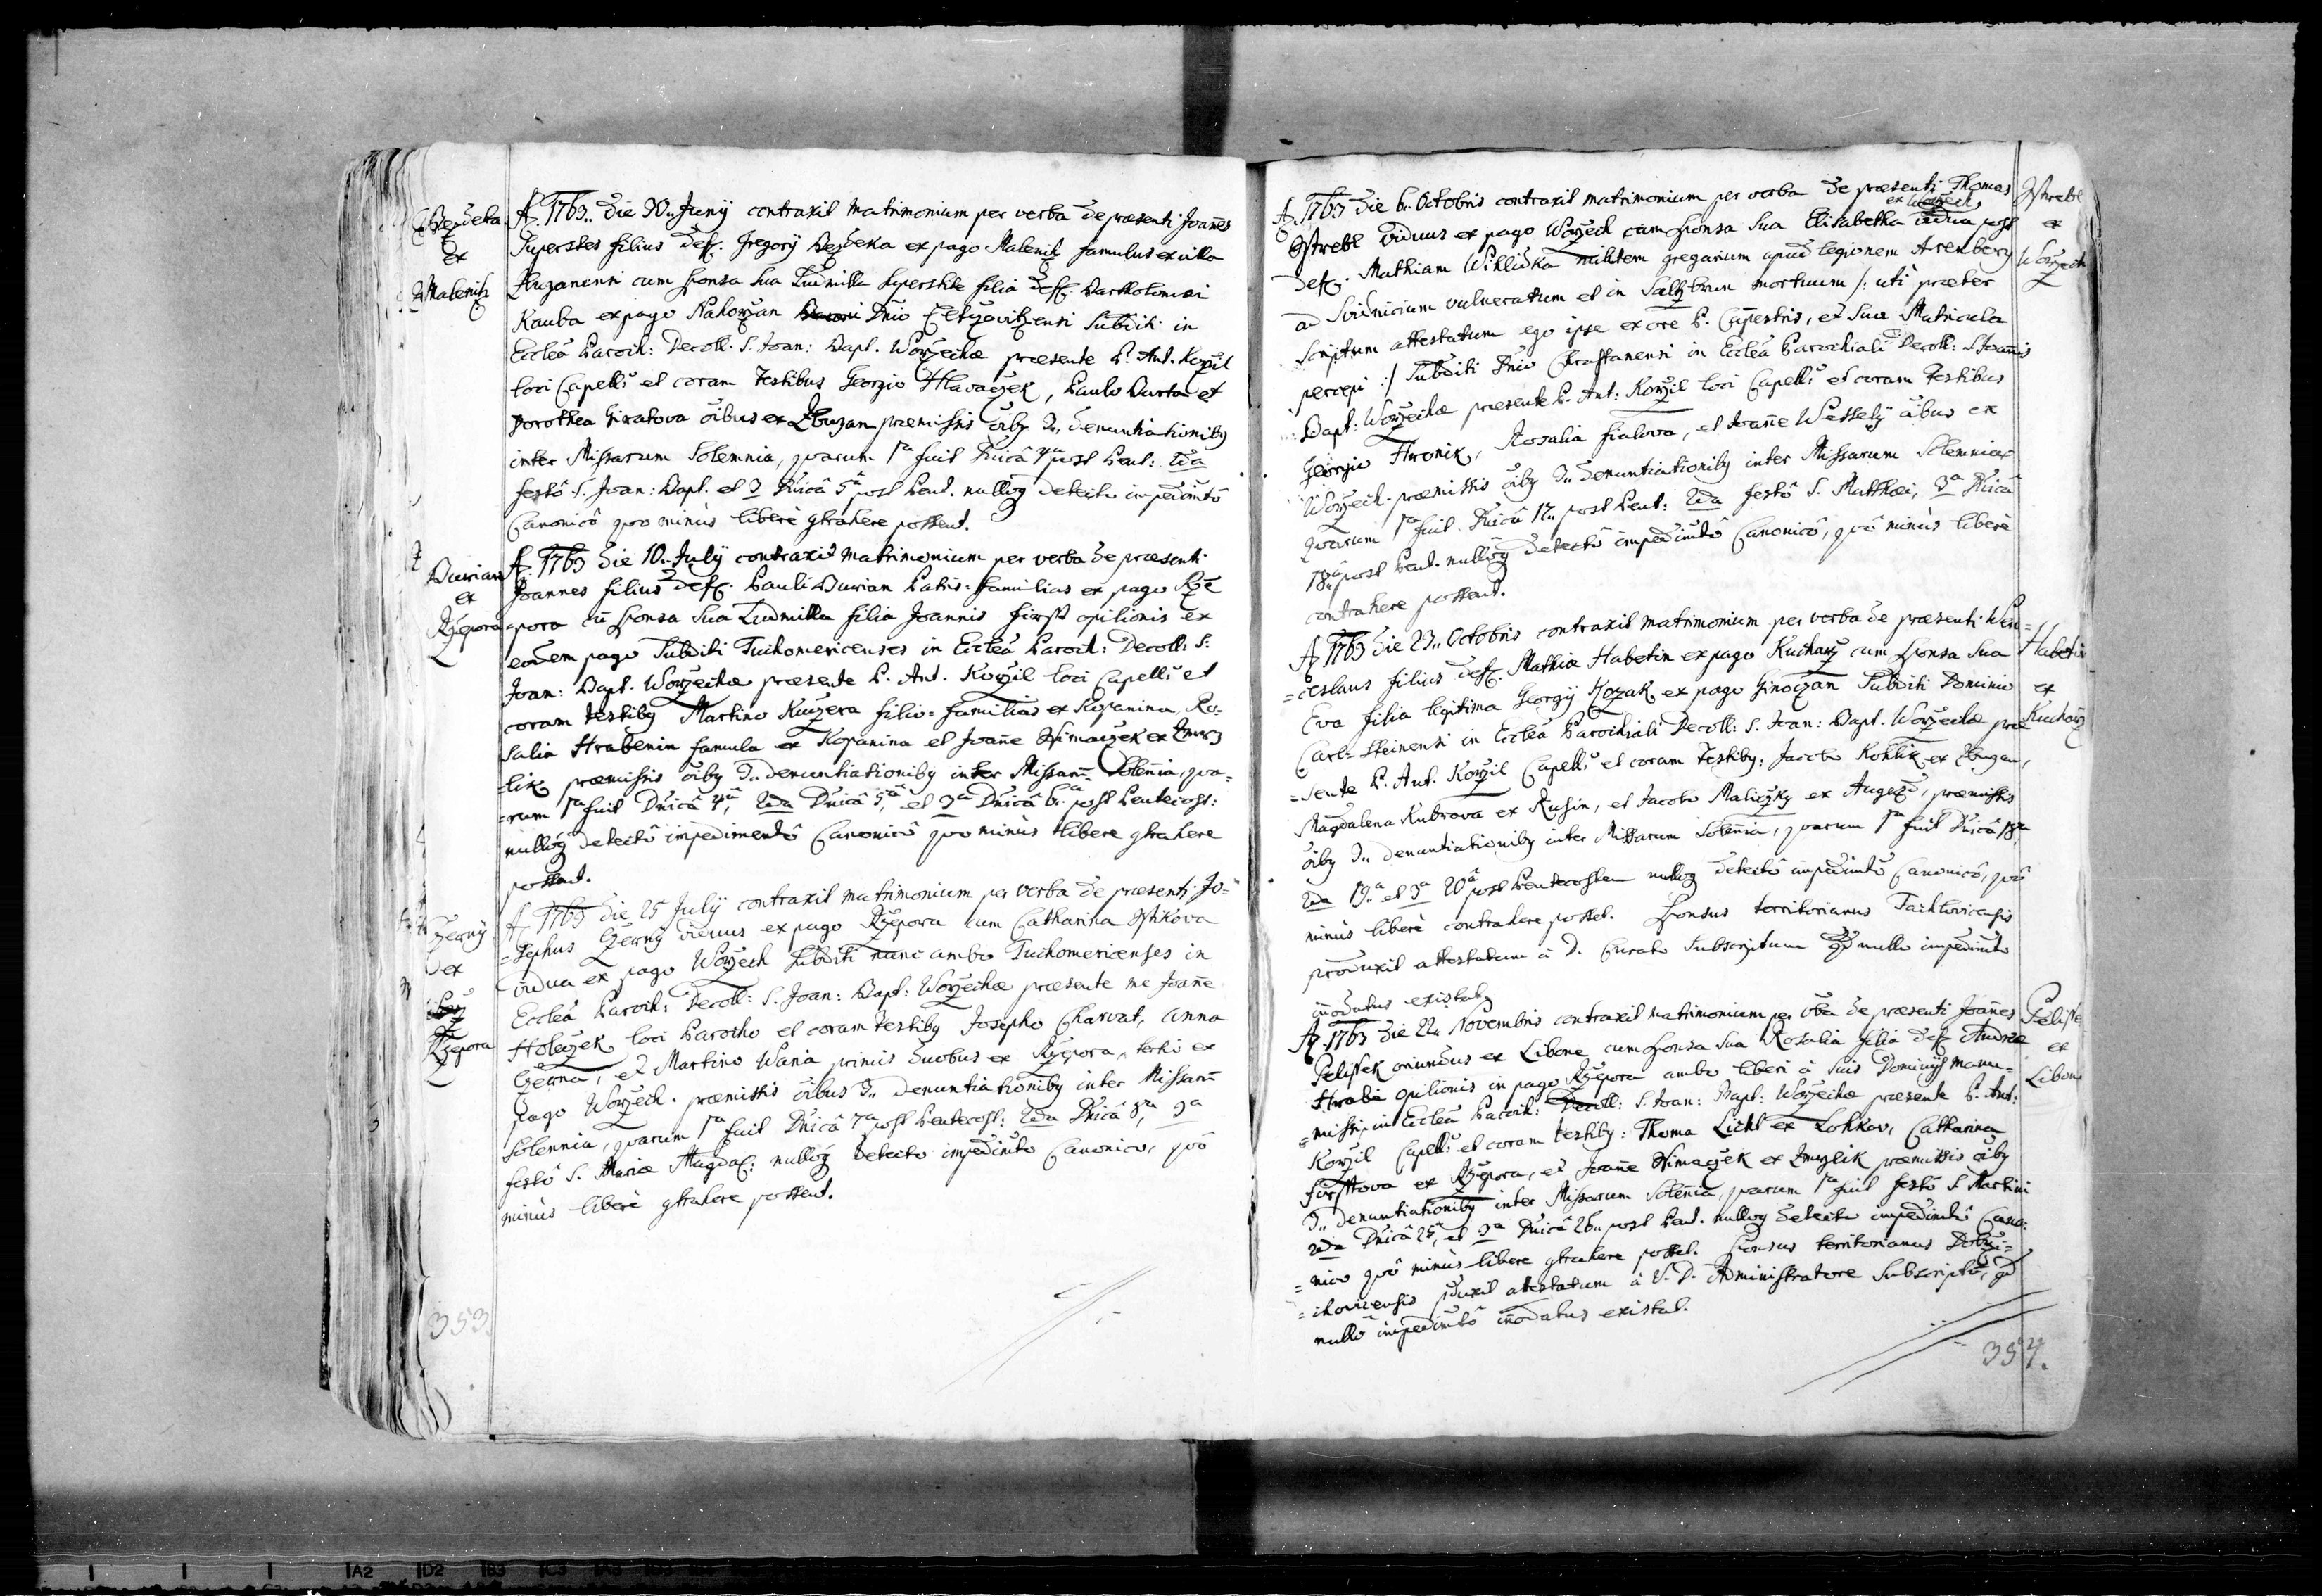 Bezdeka
ex
Malenitz
A. 1763. die 30. Junij contraxit matrimonium per verba de praesenti Joanes
superstes filius def. Gregorij Bezdeka ex pago Malenitz famulus ex villa
cum sponsa sua Ludmilla superstite filia deff. Bartholomaei
Kauba ex pago Nahorzan Dnio subditi in
Eccleâ Paroch: Decoll. S. Joan: Bapt. Worzechae praesente P. Ant. Korzil
loci Capells et coram testibus Georgio Hlavaczek, Paulo et
Dorothea Giratova oibus ex Zbuzan praemissis oiby 3. denuntiationiby
inter Missarum Solemnia, quarum 1a fuit Dnicâ 4ta post Pent: 2da
festô S. Joan: Bapt. et 3 Dnicâ 5â post Pent. nulloq detecto impedimtô
Canonicô quo minùs liberè gtrahere possent.
Durian
ex
Rzepora
A. 1763 die 10. Julij contraxit matrimonium per verba de praesenti
Joannes filius deff. Pauli Durian Patris-familias ex pago Rze
pora cu sponsa sua Ludmilla filia Joannis first opilionis ex
eodem pago Subditi Tuchomericenses in Eccleâ Paroch: Decoll: S:
Joan: Bapt. Worzechae praesente P. Ant. Korzil loci Capells et
coram testiby Martino Kuczera filio-familias ex Kopanina, Ro-
salia Hrabenin famula ex Kopanina et Joane Simaczek ex Zmrz
lik, praemissis oiby 3. denuntiationiby inter Missarm Solenia, qua-
rum 1a fuit Dnicâ 4â, 2da Dnicâ 5â, et 3a Dnicâ 6.a post Pentecost:
nulloq detectô impedimentô Canonicô quo minùs libere gtrahere
possent.
Czerny
ex
Rzepora
A. 1763 die 25 Julij contraxit matrimonium per verba de praesenti Jo-
sephus Czerny viduus ex pago Rzepora cum Catharina
vidua ex pago Worzech subditi nunc ambo Tuchomericenses in
Eccleâ Paroch: Decoll: S. Joan: Bapt: Worzechae praesente me Joane
Holeczek loci Parocho et coram testiby Josepho Charvat, Anna
Czerna, et Martino Wania primis duobus ex Rzepora, tertio ex
pago Worzech. praemissis oibus 3. denuntiationiby inter Missarm
Solennia, quarum 1a fuit Dnicâ 7a post Pentecost: 2da Dnicâ 8a, 3a
festô S. Mariae Magda: nulloq detecto impedimto Canonico, quô
minùs liberè gtrahere possent.
353.
A. 1763 die 6. Octobris contraxit matrimonium per verba de praesenti Thomas
ex Worzech
viduus ex pago Worzech cum sponsa sua Elisabetha vidua post
deff. Mathiam Wihlidka militem gregarium apud legionem Arenberg
ad Svidnicium vulneratum et in mortuum /: uti praeter
Scriptum attestatum ego ipse ex ore P. Capestris, et sua Matricula
percepi :/ Subditi Dnio in Eccleâ Parochiali Decoll: S Joanis
Bapt: Worzechae praesente P. Ant: Korzil loci Capells et coram testibus
Georgio Hronik, Rosalia fialova, et Joane Wessely oibus ex
Worzech. praemissis oiby 3. denuntiationiby inter Missarum Solemnia
quarum 1a fuit Dnicâ 17. post Pent: 2da festô S. Matthaei, 3a Dnicâ
18â post Pent. nulloq detectô impedimtô Canonicô, quô minùs liberè
contrahere possent.
ex
Worzech
A. 1763 die 23. Octobris contraxit matrimonium per verba de praesenti Wen-
ceslaus filius deff. Mathiae Habetin ex pago Kucharz cum sponsa sua
Eva filia legitima Georgij Kozak ex pago Ginoczan Subditi Dominio
Carl-Steinensi in Eccleâ Parochiali Decoll: S. Joan: Bapt. Worzechae prae
sente P. Ant. Korzil Capells et coram testiby: Jacobo Kohlik ex Zbuzan,
Magdalena Kubrova ex Rusin, et Jacobo Maliczky ex Augezd, praemissis
oiby 3. denuntiationiby inter Missarum Solenia, quarum 1a fuit Dnicâ 18va
2da 19.a et 3a 20â post Pentecosten nulloq detectô impedimtô Canonicô, quô
minùs liberè contrahere posset. Sponsus territorianus Tachlovicensis
produxit attestatum à D. Curato Subscriptum qd nullo impedimto
inodatus existat
Habetin
ex
Kucharz
A. 1763 die 22. Novembris contraxit matrimonium per vba de praesenti Joanes
Pelissek oriundus ex Libone cum sponsa sua Rosalia filia def. Andreae
Hrabie opilionis in pago Rzepora ambo liberi à suis Dominijs manu-
missi, in Eccleâ Paroch: Decoll: S. Joan: Bapt: Worzechae praesente P. Ant:
Korzil Capells et coram testiby: Thoma Licht ex Lohkov, Catharina
fürsttova ex Rzepora, et Joane Simaczek ex Zmrzlik praemissis oiby
3. denuntiationiby inter Missarum Solenia, quarum 1a fuit festô S Martini
2da Dnicâ 25, et 3a Dnicâ 26. post Pent. nulloq detecto impedimtô Cano-
nico quô minùs libere gtrahere posset. Sponsus territorianus Dobrzi-
chovicensis pduxit attestatum à V. D. Administratore Subscriptû, qd
nullô impedimtô inodatus existat.
ex
Libone
354.